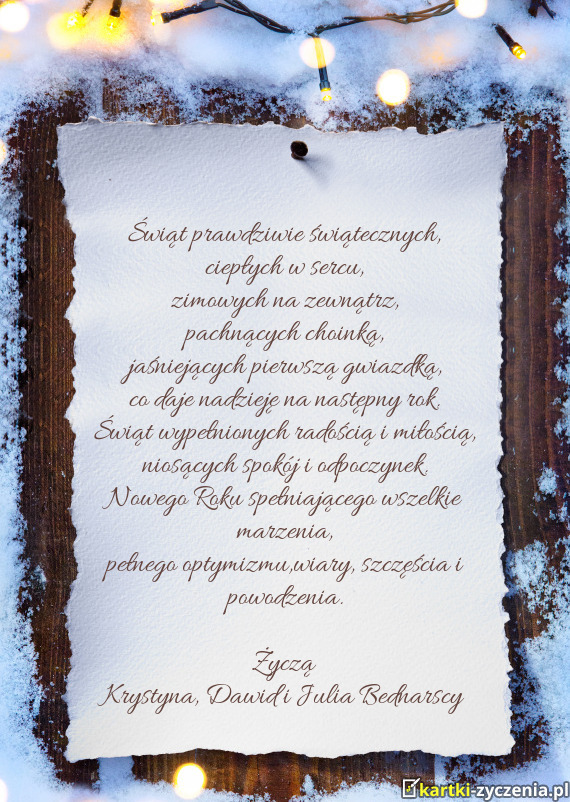 Świąt prawdziwie świątecznych,
ciepłych w sercu,
zimowych na zewnątrz,
pachnących choinką,
jaśniejących pierwszą gwiazdką,
co daje nadzieję na następny rok.
Świąt wypełnionych radością i miłością,
niosących spokój i odpoczynek.
Nowego Roku spełniającego wszelkie
marzenia,
pełnego optymizmu,wiary, szczęścia i
powodzenia.
Życzą
Krystyna, Dawid i Julia Bednarscy
kartki-zyczenia.pl